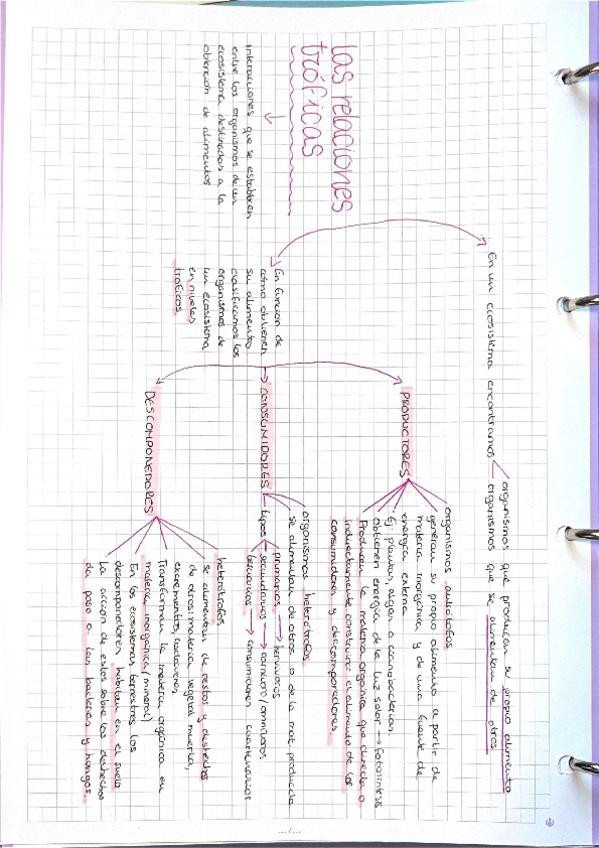 las relaciones
tróficas
interacciones que se establecen
entre los organismos de un
ecosistema destinadas a la
obtención de alimentos
En un ecosistema encontramos
organismos que producen su propio alimento
organismos que se alimentan de otros
En función de
cómo obtienen
su alimento
clasificamos los
organismos de
un ecosistema
en niveles
tróficos.
PRODUCTORES
organismos autótrofos
generan su propio alimento a partir de
materia inorgánica y de una fuente de
energía externa
Ej plantas, algas o cianobacterias.
Obtienen energía de la luz solar → fotosíntesis
Producen la materia orgánica que directa o
indirectamente constituye el alimento de los
consumidores y descomponedores.
CONSUMIDORES
organismos heterótrofos.
se alimentan de otros o de la mat. producida
tipos
primarios → herbívoros
secundarios → carnívoros/omnívoros
terciarios → consumidores cuaternarios
DESCOMPONEDORES
heterótrofos
se alimentan de restos y deshechos
de otros: materia vegetal muerta,
excrementos, cadáveres
Transforman la materia orgánica en
materia inorgánica (mineral)
En los ecosistemas terrestres los
descomponedores habitan en el suelo
La acción de estos sobre los deshechos
da paso a las bacterias y hongos.
.../...